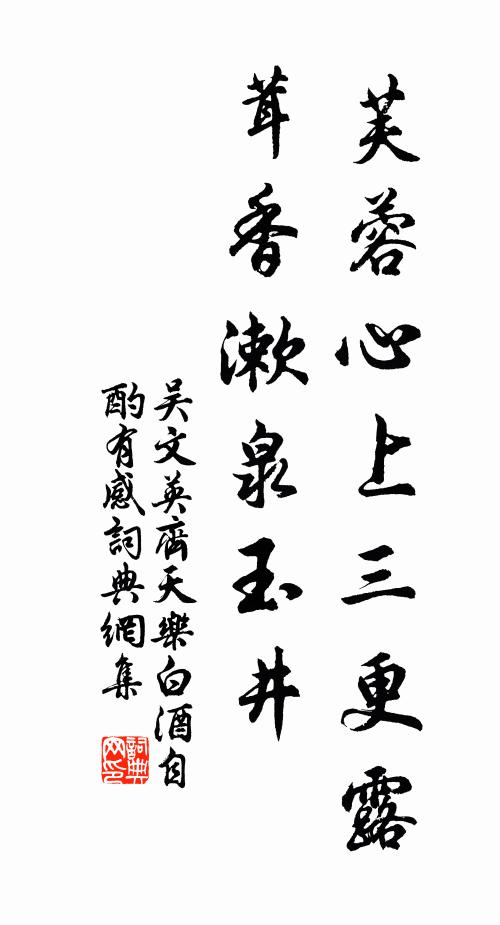 芙蓉心上三更露
茸香漱泉玉井
吴文英齊天樂白酒自
酌有感詞典網集
詞典
网印